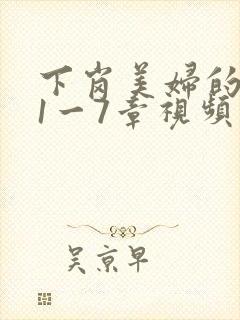 下岗美婦的
1一7章視頻
吴京早